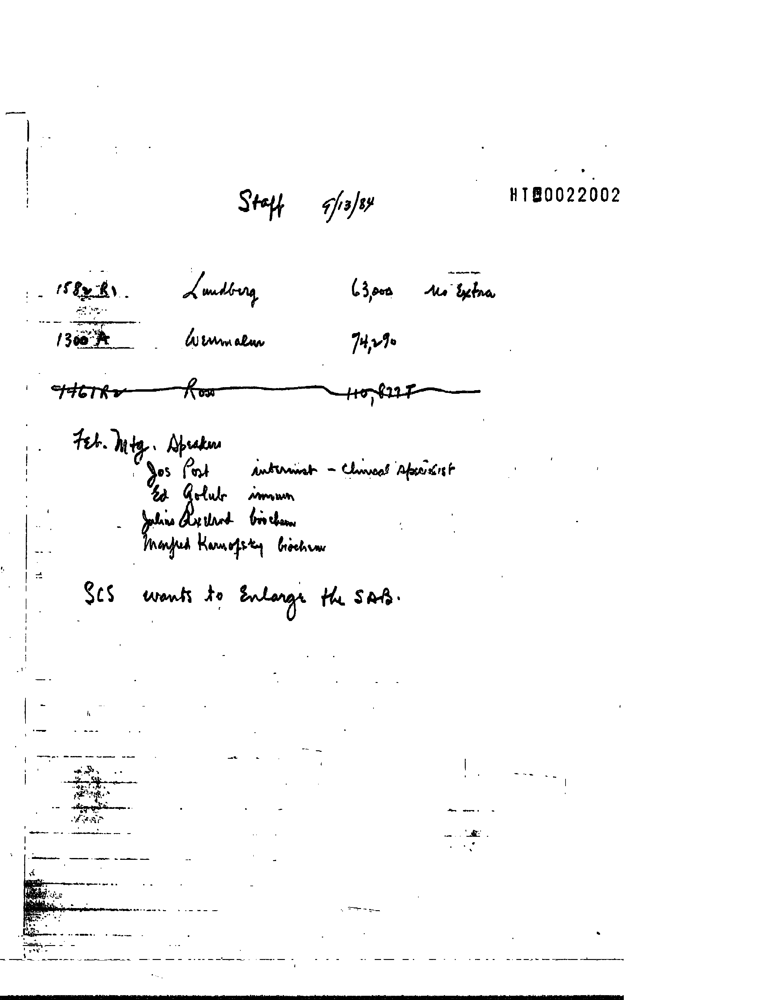 Staff 9/13/84
HT00022002
1582 R1 Lundberg 63,000 no Extra
1300 A Wennmalm 74,290
Ross
Feb. Mtg. Speakers
Jos Post internist - Clinical Specialist
Ed Golub immun
Julius Axelrod biochem
Manfred Karnofsky biochem
SCS wants to Enlarge the SAB.